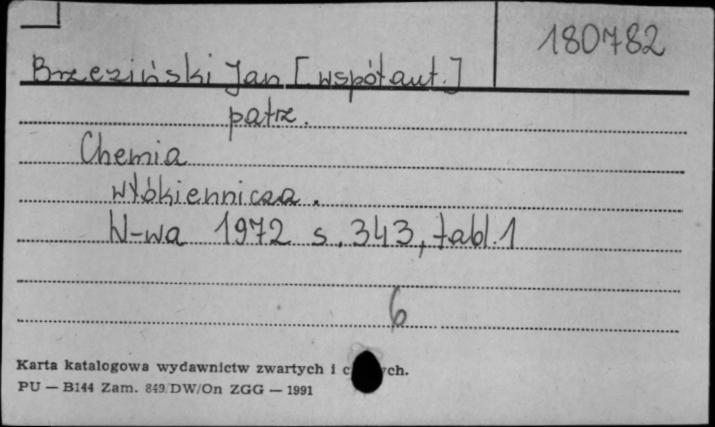 180782
Brzeziński Jan [współaut.]
patrz.
Chemia
włókiennicza.
W-wa 1972 s. 343, tabl. 1
6
Karta katalogowa wydawnictw zwartych i ch.
PU — B144 Zam. 849/DW/On ZGG — 1991